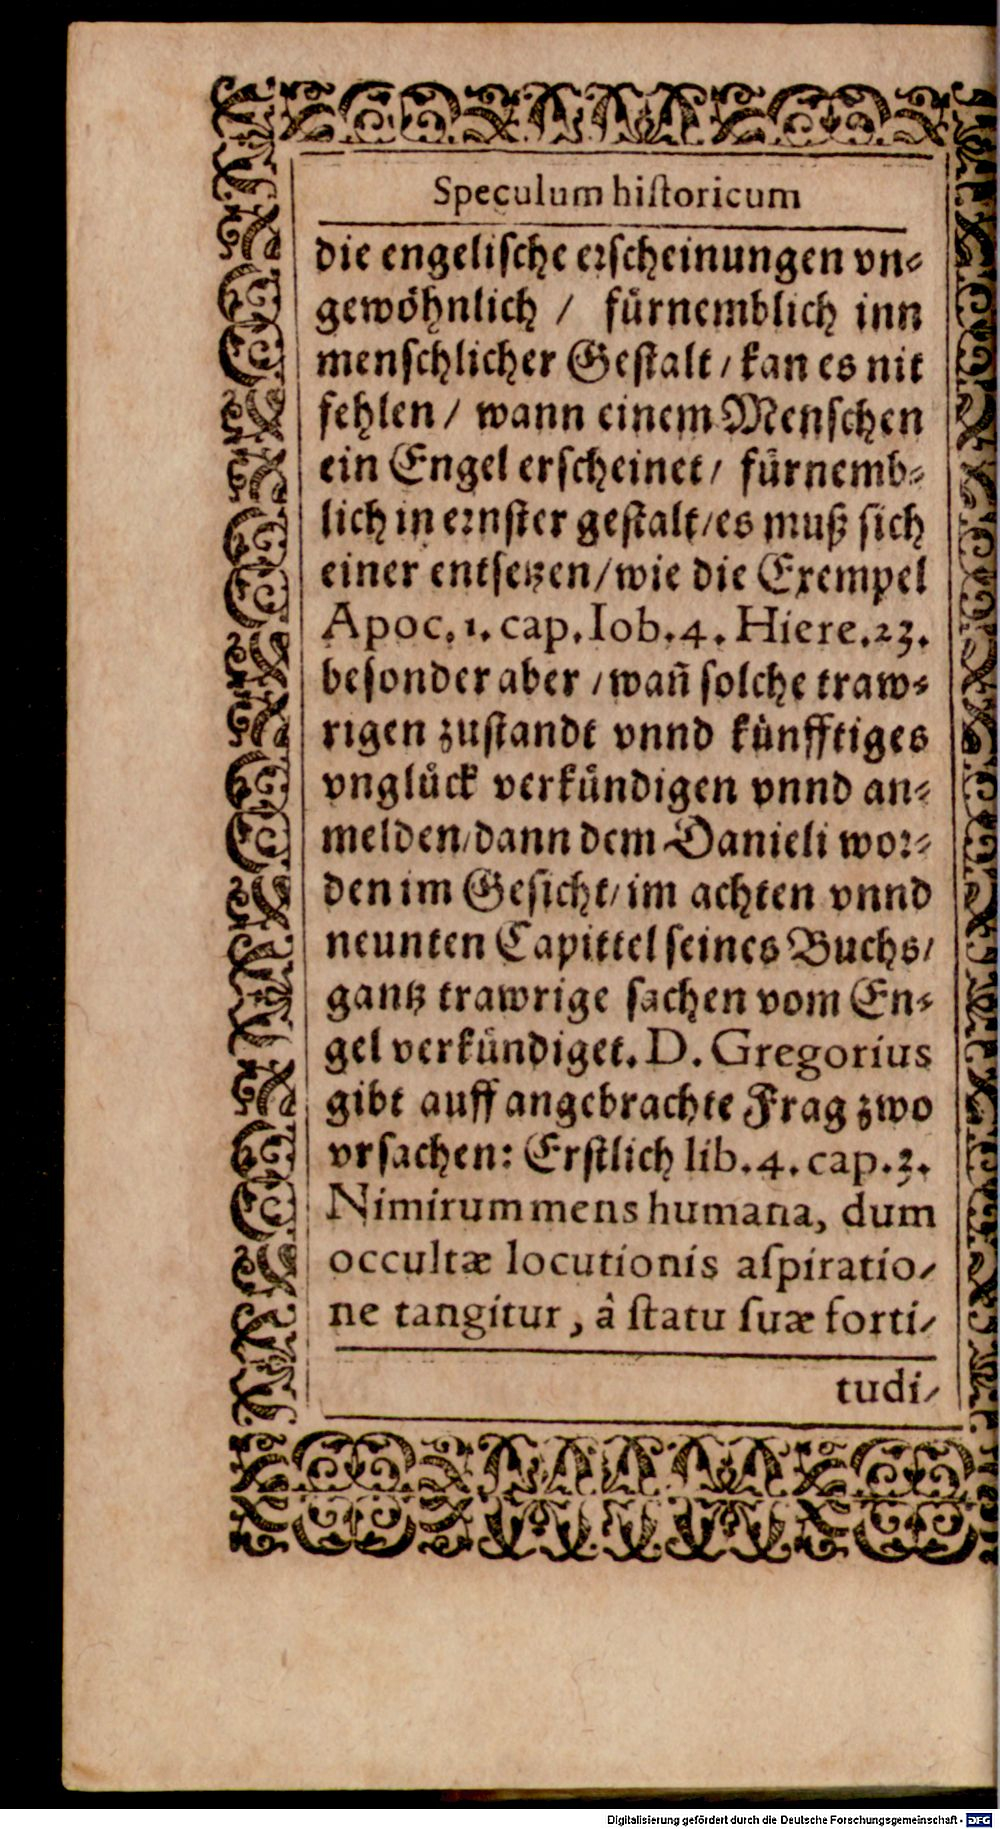 Speculum hiſtoricum
die engeliſche erſcheinungen vn⸗
gewöhnlich / fürnemblich inn
menſchlicher Geſtalt / kan es nit
fehlen / wann einem Menſchen
ein Engel erſcheinet / fürnemb⸗
lich in ernſter geſtalt / es muß ſich
einer entſetzen / wie die Exempel
Apoc. 1. cap. Iob. 4. Hiere. 23.
beſonder aber / wañ ſolche traw⸗
rigen zuſtandt vnnd künfftiges
vnglück verkündigen vnnd an⸗
melden / dann dem Danieli wor⸗
den im Geſicht / im achten vnnd
neunten Capittel ſeines Buchs /
gantz trawrige ſachen vom En⸗
gel verkündiget. D. Gregorius
gibt auff angebrachte Frag zwo
vrſachen: Erſtlich lib. 4. cap. 3.
Nimirum mens humana, dum
occultæ locutionis aſpiratio-
ne tangitur, â ſtatu ſuæ forti-
tudi-
Digitalisierung gefördert durch die Deutsche Forschungsgemeinschaft - DFG